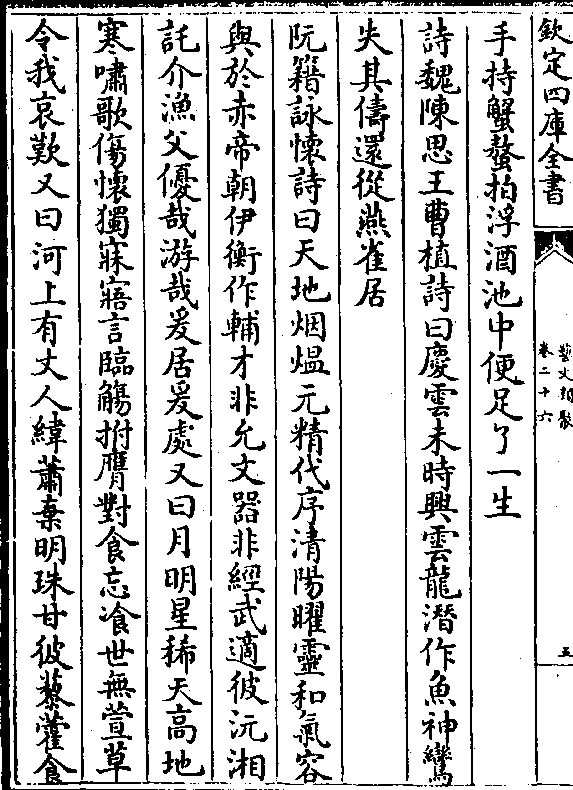 欽定四庫全書
藝文類聚
卷二十六
五
手持蟹螯拍浮酒池中便足了一生
詩魏陳思王曹植詩曰慶雲未時興雲龍潛作魚神鸞
失其儔還從燕雀居
阮籍詠懷詩曰天地烟熅元精代序清陽曜靈和氣容
與於赤帝朝伊衡作輔才非允文器非經武適彼沅湘
託介漁父優哉游哉爰居爰處又曰月明星稀天高地
寒嘯歌傷懷獨寐寤言臨觴拊膺對食忘飡世無萱草
令我哀歎又曰河上有丈人緯蕭棄明珠甘彼藜藿食